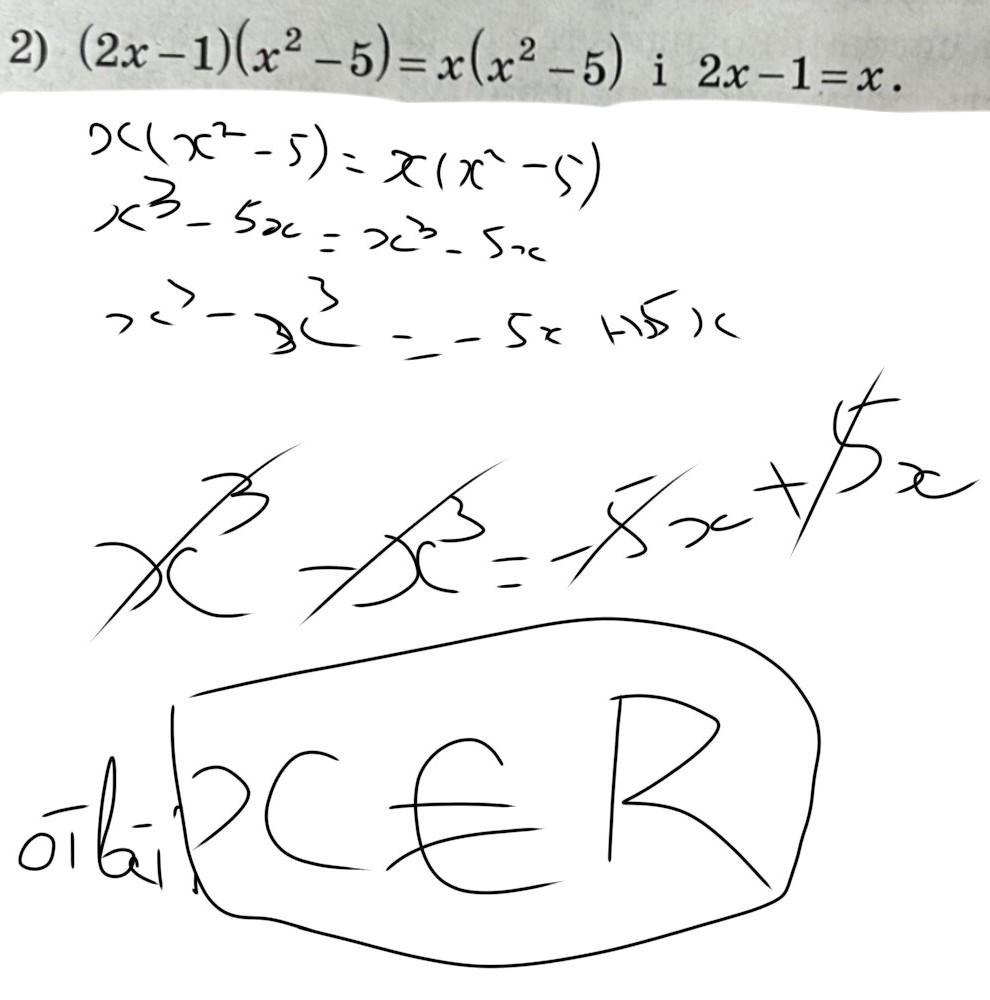 2) (2x−1)(x² −5)=x(x² −5) і 2x−1=x.
x(x²-5)=x(x²-5)
x³-5x=x³-5x
x³-x³=-5x+5x
x³-x³=-5x+5x
x∈R